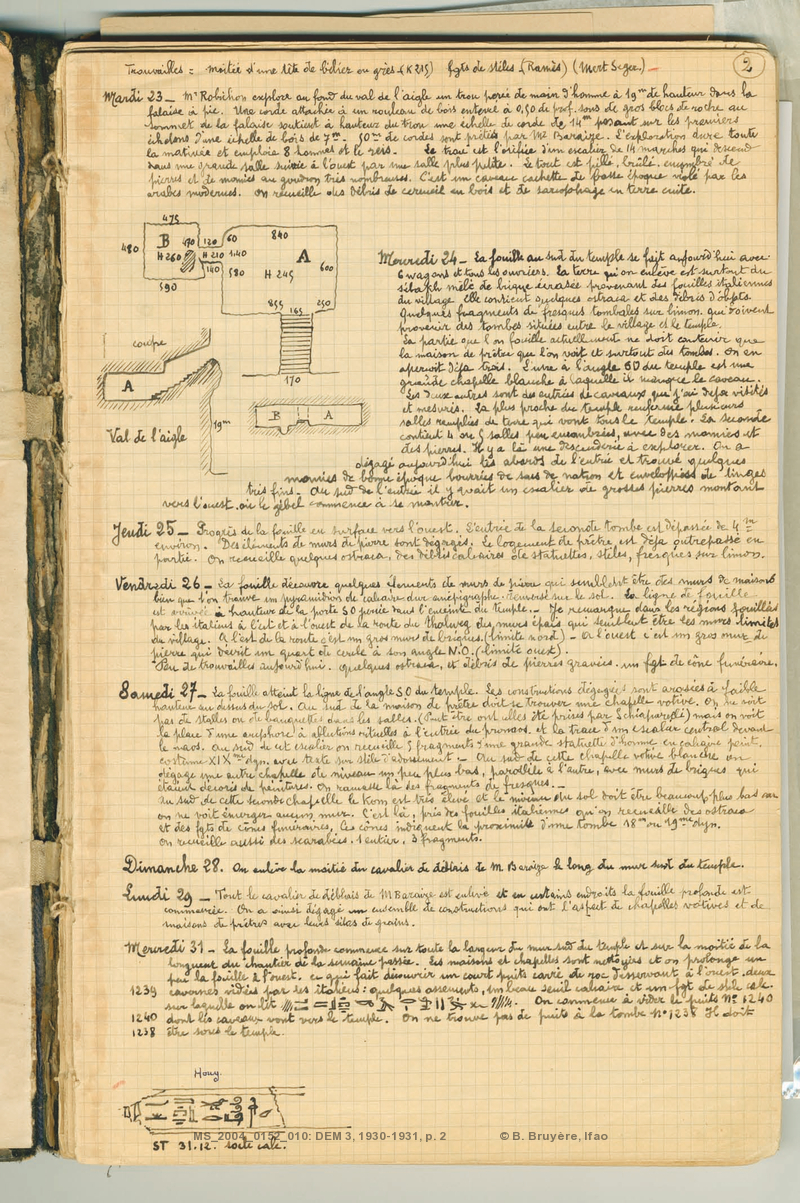 Trouvailles = moitié d'une tête de bélier en grès (K 215) fgts de stèles (Ramès) (Mert Seger.)
2
Mardi 23 _ Mr Robichon explore au fond du val de l'aigle un trou percé de main d'homme à 19m de hauteur dans la
falaise à pic. Une corde attachée à un rouleau de bois enterré à 0,50 de prof. sous de gros blocs de roche au
sommet de la falaise soutient à hauteur du trou une échelle de corde de 14m posant sur les premiers
échelons d'une échelle de bois de 7m. 50m de cordes sont prêtés par Mr Baraize. L'exploration dure toute
la matinée et emploie 8 hommes et le reis. Le trou est l'orifice d'un escalier de 14 marches qui descend
dans une grande salle suivie à l'ouest par une salle plus petite. Le tout est pillé, brûlé, encombré de
pierres et de momies au goudron très nombreuses. C'est un caveau cachette de basse époque violé par les
arabes modernes. On recueille des débris de cercueil en bois et de sarcophage en terre cuite.
475
480 B 170 120 60 840 A
H 260 H 210 140
140 580 H 245 600
590
855 165 250
170
coupe
A
19m
B A
Val de l'aigle
Mercredi 24 _ La fouille au sud du temple se fait aujourd'hui avec
6 wagons et tous les ouvriers. La terre qu'on enlève est surtout du
sebakh mêlé de brique écrasée provenant des fouilles italiennes
du village. Elle contient quelques ostraca et des débris d'objets.
Quelques fragments de fresques tombales sur limon qui doivent
provenir des tombes situées entre le village et le temple.
La partie que l'on fouille actuellement ne doit contenir que
la maison de prêtre que l'on voit et surtout des tombes. On en
aperçoit déjà trois. L'une à l'angle SO du temple est une
grande chapelle blanche à laquelle il manque le caveau.
Les deux autres sont des entrées de caveaux que j'ai déjà visités
et mesurés. La plus proche du temple renferme plusieurs
salles remplies de terre qui vont sous le temple. La seconde
contient 4 ou 5 salles peu encombrées, avec des momies et
des pierres. Il y a là une descenderie à explorer. On a
dégagé aujourd'hui les abords de l'entrée et trouvé quelques
momies de bonne époque bourrées de sacs de natron et enveloppées de linges
très fins. Au sud de l'entrée il y avait un escalier de grosses pierres montant
vers l'ouest où le gébel commence à se montrer.
Jeudi 25 _ Progrès de la fouille en surface vers l'ouest. L'entrée de la seconde tombe est dépassée de 4m
environ. Des éléments de murs de pierre sont dégagés. Le logement de prêtre est déjà outrepassé en
partie. On recueille quelques ostraca, des débris calcaires de statuettes, stèles, fresques sur limon.
Vendredi 26 _ La fouille découvre quelques éléments de murs de pierre qui semblent être des murs de maisons
bien que l'on trouve un pyramidion de calcaire dur anépigraphe renversé sur le sol. La ligne de fouille
est arrivée à hauteur de la porte SO percée dans l'enceinte du temple. _ Je remarque dans les régions fouillées
par les italiens à l'est et à l'ouest de la route du thalweg des murs épais qui semblent être les murs limites
du village. A l'est de la route c'est un gros mur de briques. (limite nord) _ et à l'ouest c'est un gros mur de
pierre qui décrit un quart de cercle à son angle N.O. (limite ouest).
Peu de trouvailles aujourd'hui. Quelques ostraca, et débris de pierres gravées. un fgt de cône funéraire.
Samedi 27 _ La fouille atteint la ligne de l'angle SO du temple. Les constructions dégagées sont arasées à faible
hauteur au dessus du sol. Au sud de la maison de prêtre doit se trouver une chapelle votive. On ne voit
pas de stalles ou de banquettes dans les salles. (Peut être ont elles été prises par Schiaparelli) mais on voit
la place d'une amphore à ablutions rituelles à l'entrée du pronaos. et la trace d'un escalier central devant
le naos. Au sud de cet escalier on recueille 5 fragments d'une grande statuette d'homme en calcaire peint.
costume XIXme dyn. avec texte sur stèle d'adossement _ Au sud de cette chapelle votive blanche on
dégage une autre chapelle de niveau un peu plus bas, parallèle à l'autre, avec murs de briques qui
étaient décorés de peintures. On ramasse là des fragments de fresques. _
Au sud de cette seconde chapelle le Kom est très élevé et le niveau du sol doit être beaucoup plus bas car
on ne voit émerger aucun mur. C'est là, près des fouilles italiennes qu'on recueille des ostraca
et des fgts de cônes funéraires. Ces cônes indiquent la proximité d'une tombe 18me ou 19me dyn.
On recueille aussi des scarabées, 1 entier, 3 fragments.
Dimanche 28. On enlève la moitié du cavalier de débris de M Baraize le long du mur sud du temple.
Lundi 29 _ Tout le cavalier de déblais de M Baraize est enlevé et en certains endroits la fouille profonde est
commencée. On a ainsi dégagé un ensemble de constructions qui ont l'aspect de chapelles votives et de
maisons de prêtres avec leurs silos de grains.
Mercredi 31 _ La fouille profonde commence sur toute la largeur du mur sud du temple et sur la moitié de la
longueur du chantier de la semaine passée. Les maisons et chapelles sont nettoyées et on prolonge un
peu la fouille à l'ouest, ce qui fait découvrir un court puits carré de roc desservant à l'ouest deux
1239 cavernes vidées par les italiens: quelques ossements, un beau seuil calcaire et un fgt de stèle calc.
sur laquelle on lit On commence à vider le puits No 1240
1240 dont les caveaux vont vers le temple. On ne trouve pas de puits à la tombe No 1238 Il doit
1238 être sous le temple.
Houy
ST 31.12. socle calc.
MS_2004_0152_010: DEM 3, 1930-1931, p. 2 © B. Bruyère, Ifao